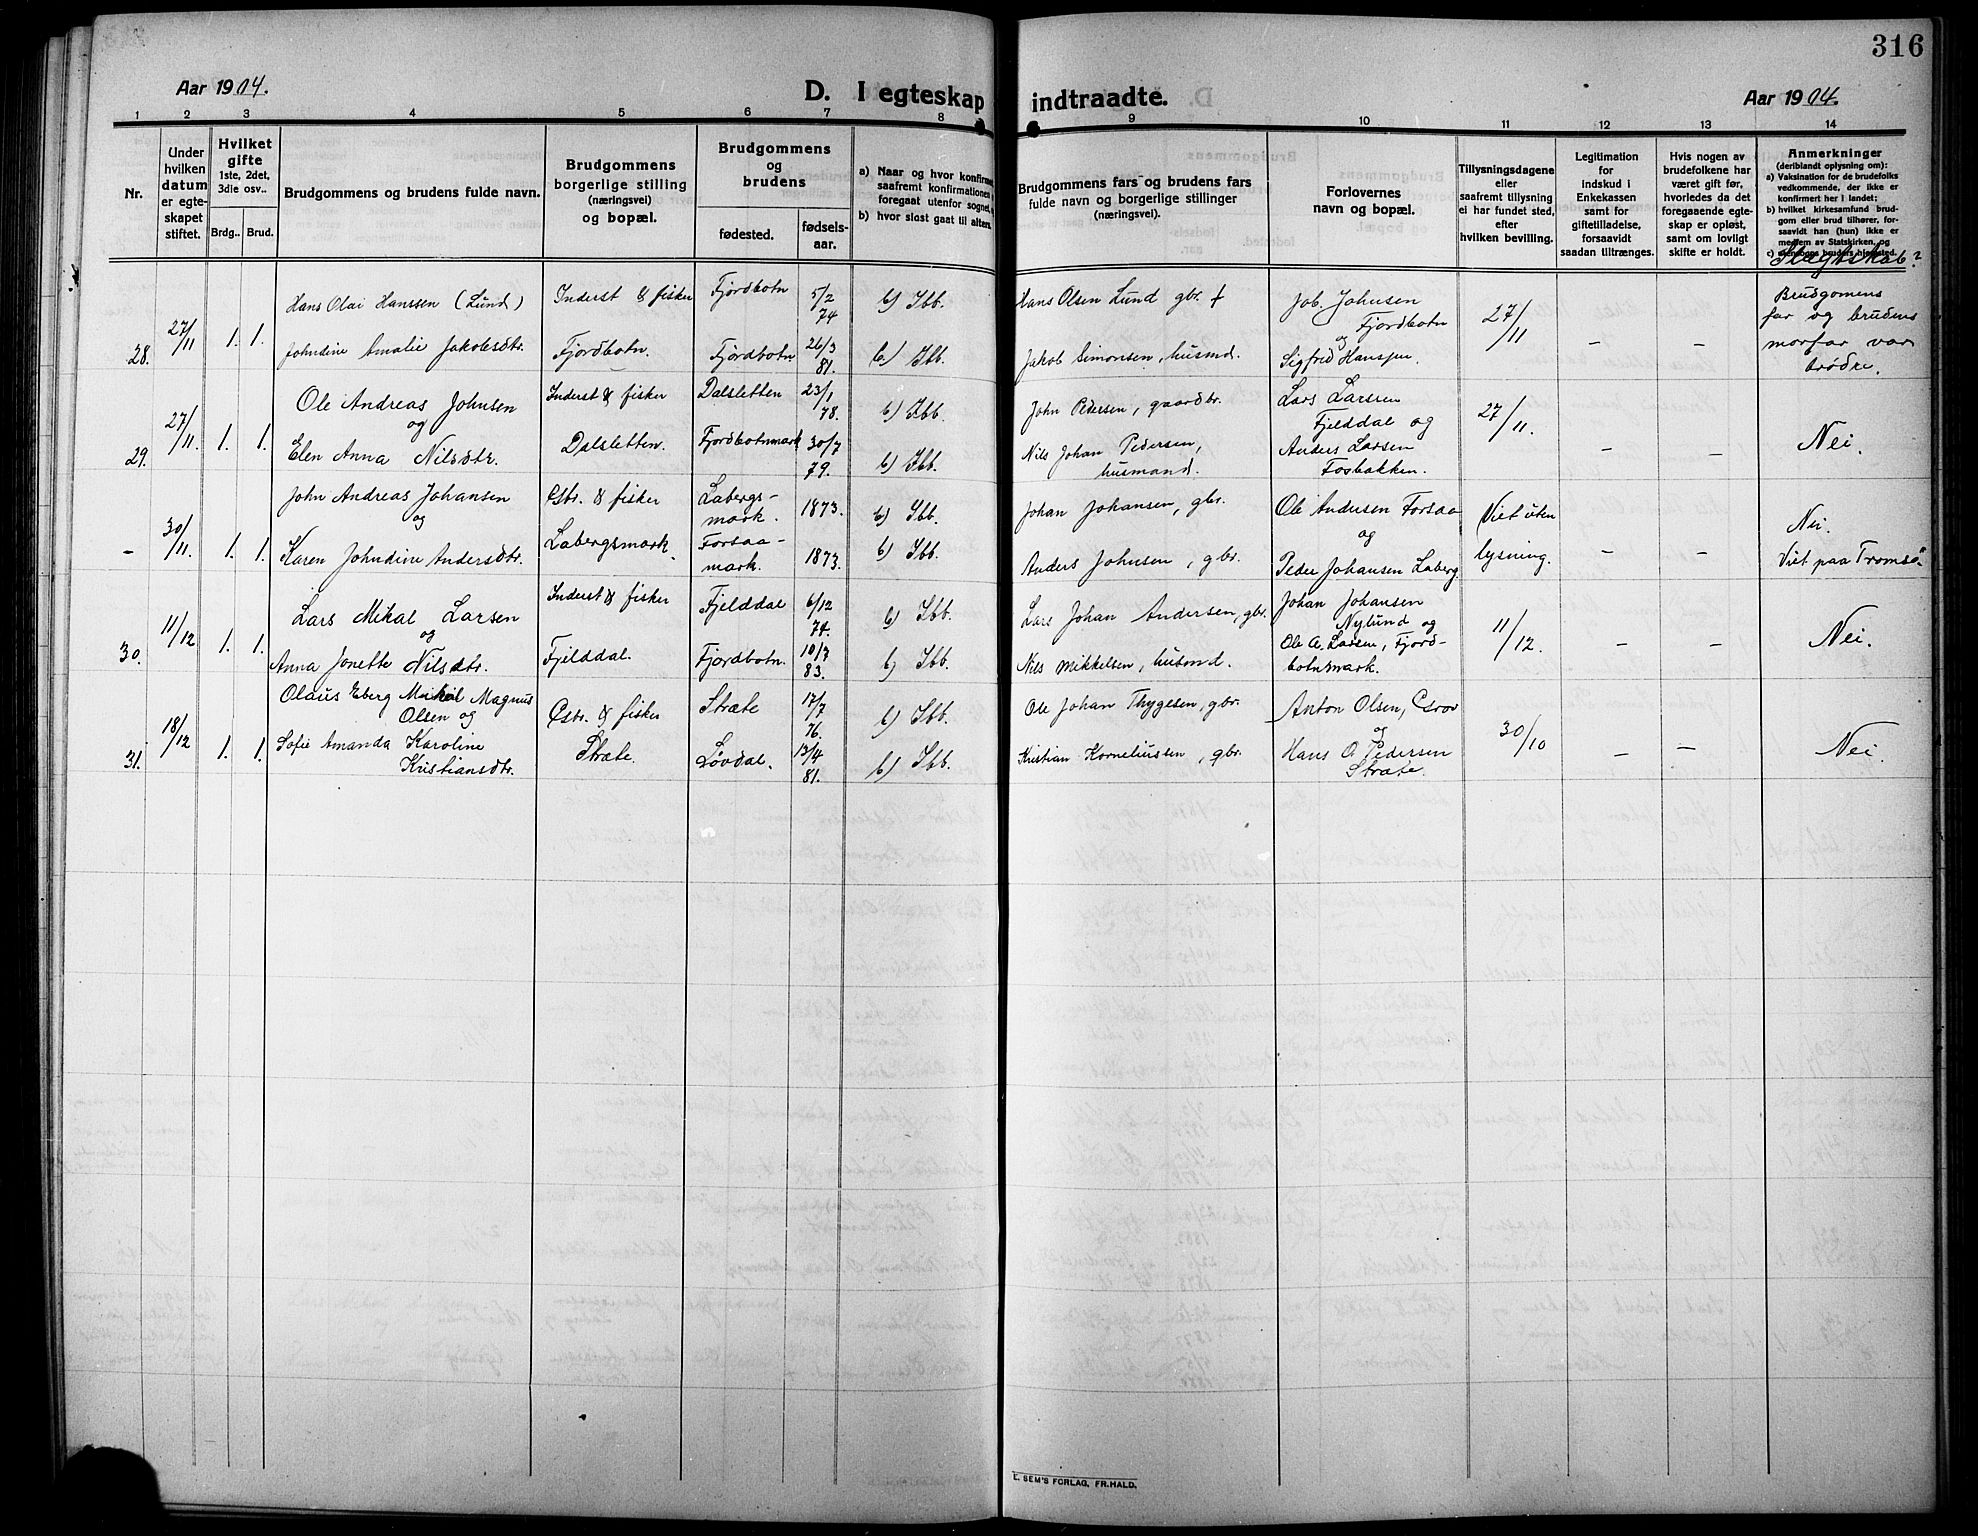 316
Aar 1904.
D. I egteskap indtraadte.
Aar 1904.
1 2 3 4 5 6 7 8 9 10 11 12 13 14
Nr.
Under
hvilken
datum
er egte-
skapet
stiftet.
Hvilket
gifte
1ste, 2det,
3die osv..
Brdg.. Brud.
Brudgommens og brudens fulde navn.
Brudgommens
borgerlige stilling
(næringsvei)
og bopæl.
Brudgommens
og
brudens
fødested.
fødsels-
aar.
a) Naar og hvor konfirm
saafremt konfirmationen
foregaat utenfor sognet,
b) hvor sidst gaat til alters.
Brudgommens fars og brudens fars
fulde navn og borgerlige stillinger
(næringsvei).
Forlovernes
navn og bopæl.
Tillysningsdagene
eller
saafremt tillysning
ei har fundet sted,
efter
hvilken bevilling.
Legitimation
for
indskud i
Enkekassen
samt for
giftetilladelse,
forsaavidt
saadan tiltrænges.
Hvis nogen av
brudefolkene har
været gift før,
hvorledes da det
foregaaende egte-
skap er opløst,
samt om lovligt
skifte er holdt.
Anmerkninger
(deriblandt oplysning om):
a) Vaksination for de brudefolks
vedkommende, der ikke er
konfirmert her i landet;
b) hvilket kirkesamfund brud-
gom eller brud tilhører, for-
saavidt han (hun) ikke er
medlem av Statskirken, og
Slegtskab?
28. 27/11 1. 1. Hans Olai Hanssen (Lund) Inderst & fisker Fjordbotn 5/2 74 b) Ibb. Hans Olsen Lund gbr. † Job. Johnsen Fjordbotn 27/11 Brudgomens
far og brudens
morfar var
brødre.
Johndine Amalie Jakobsdtr. Fjordbotn. Fjordbotn 26/3 81. b.) Ibb. Jakob Simonsen, husmd. og Sigfrid Hanssen. – –
29. 27/11. 1. 1. Ole Andreas Johnsen Inderst & fisker Dalsletten 23/1 78. b) Ibb. John Pedersen, gaardbr. Lars Larsen Fjelddal og 27/11. Nei.
og
Elen Anna Nilsdtr. Dalsletten. Fjordbotnmark 30/7 79. b) Ibb. Nils Johan Pedersen, husmand. Anders Larsen Fosbakken. – –
– 30/11. 1. 1. John Andreas Johansen Gbr. & fisker Labergs-mark. 1873. b) Ibb. Johan Johansen, gbr. Ole Andersen Forsaa Viet uten Nei.
og og
Karen Johndine Andersdtr. Labergsmark. Forsaa-mark. 1873. b) Ibb. Anders Johnsen, gbr. Peder Johansen Laberg. lysning. – – Viet paa Tromsø.
30. 11/12 1. 1. Lars Mikal Larsen Inderst & fisker Fjelddal 6/12 74. b) Ibb. Lars Johan Andersen, gbr. Johan Johansen Nylund og 11/12. Nei.
og
Anna Jonette Nilsdtr. Fjelddal. Fjordbotn. 10/7 83. b) Ibb. Nils Mikkelsen, husmd. Ole A. Larsen, Fjord-botnsmark. – –
31. 18/12 1. 1. Olaus Eberg Mikal Magnus Olsen og Gbr. & fisker Stræte 17/7 76. b) Ibb. Ole Johan Thygesen, gbr. Anton Olsen, Grov 30/10 Nei.
og
Sofie Amanda Karoline Kristiansdtr. Stræte. Løvdal. 13/4 81. b) Ibb. Kristian Korneliussen, gbr. Hans O. Pedersen Stræte. – –
E. SEM'S FORLAG, FR.HALD.